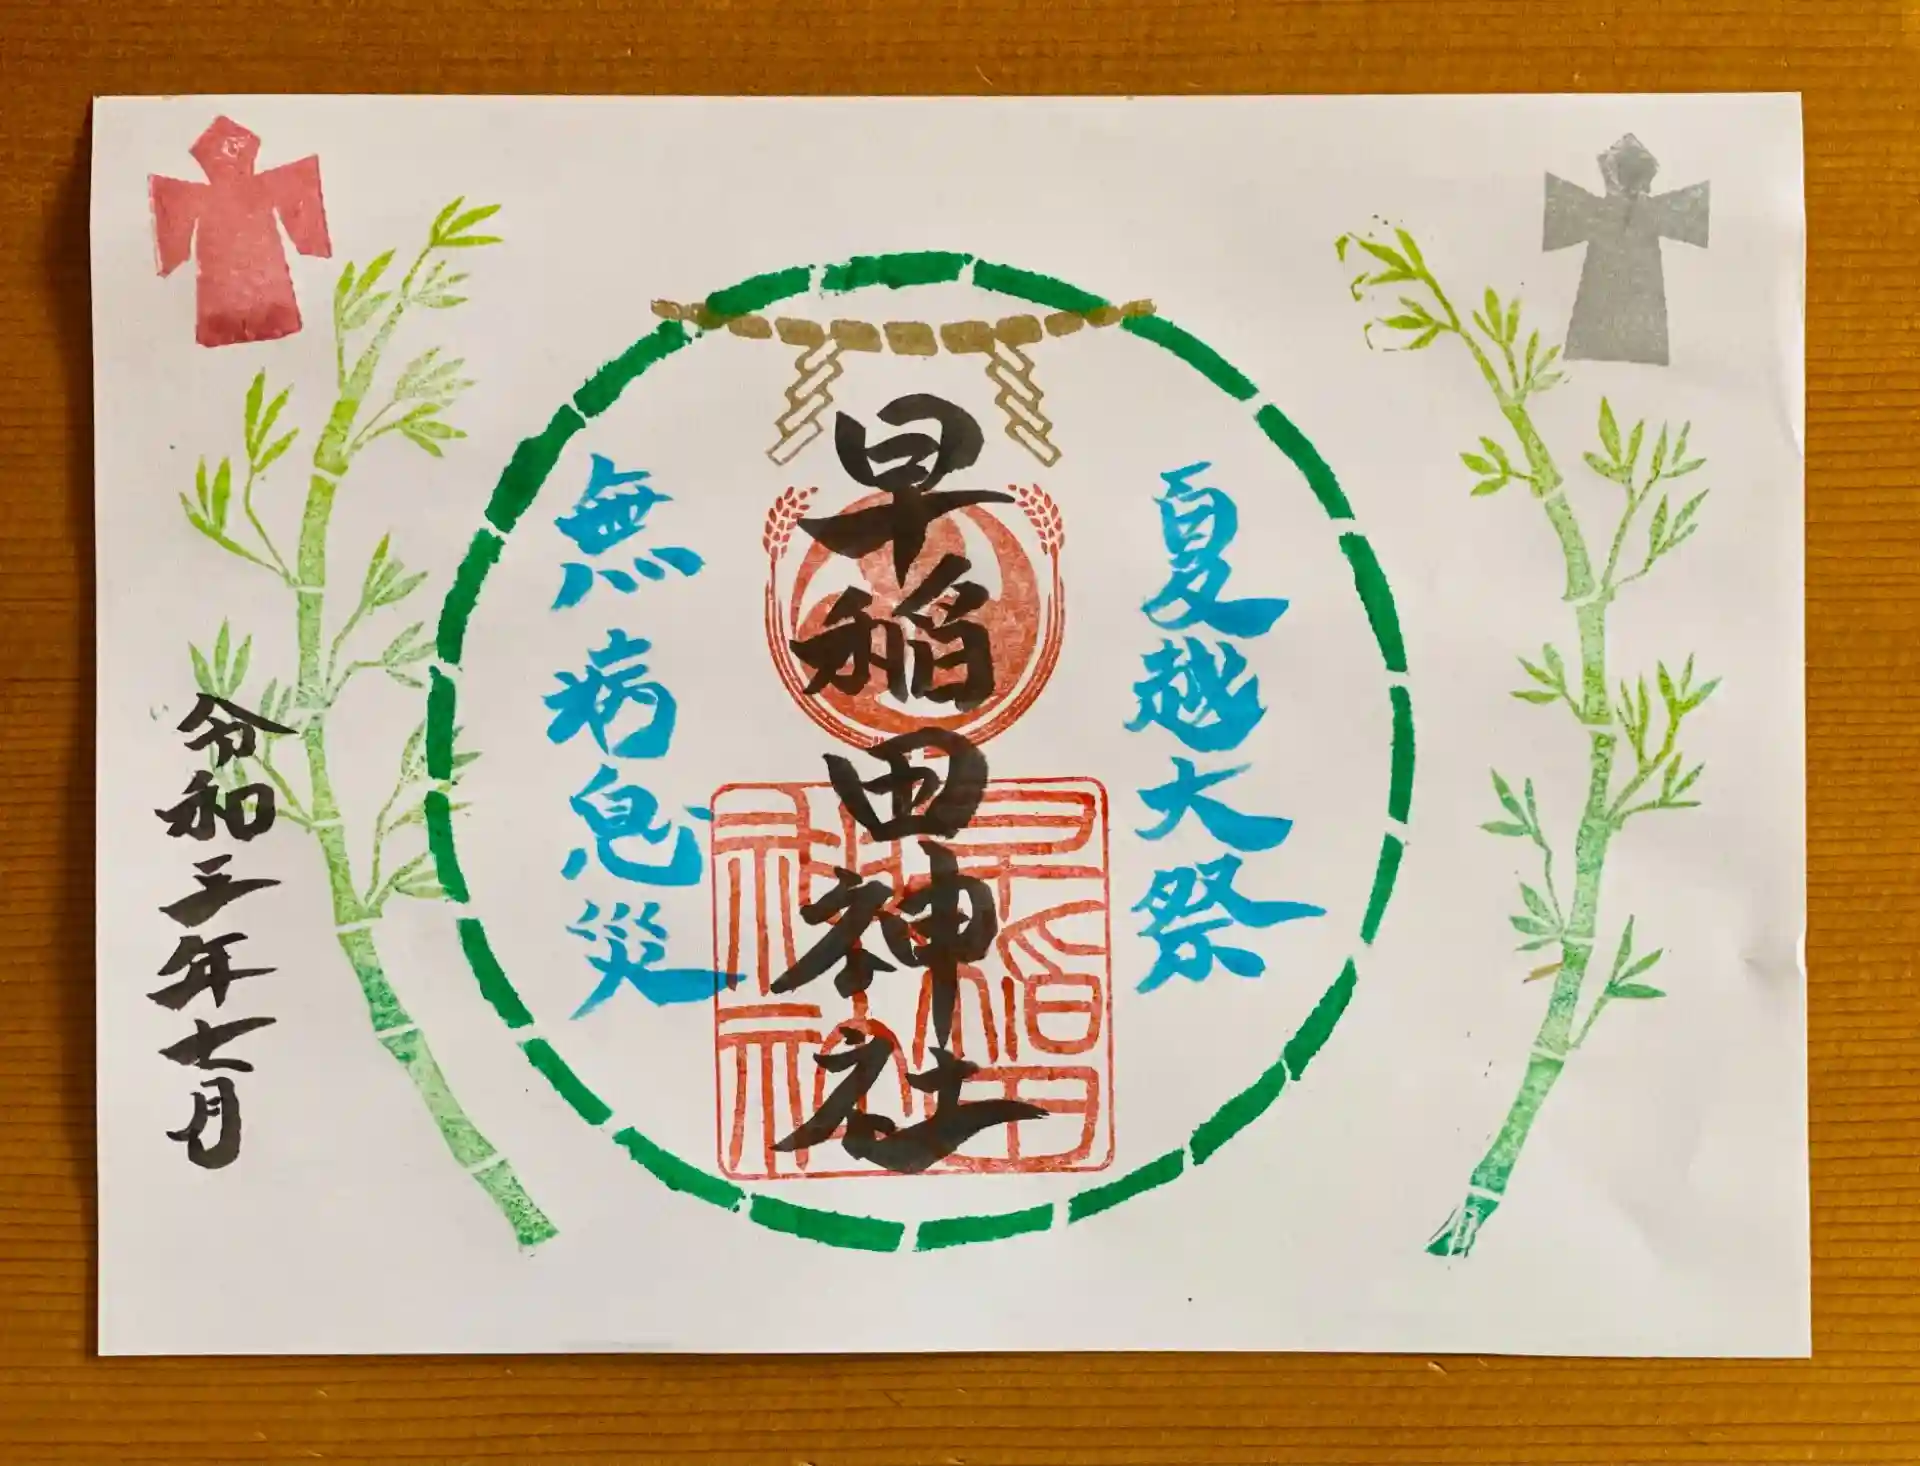 夏越大祭
早稲田神社
早稲田
神社
無病息災
令和三年七月